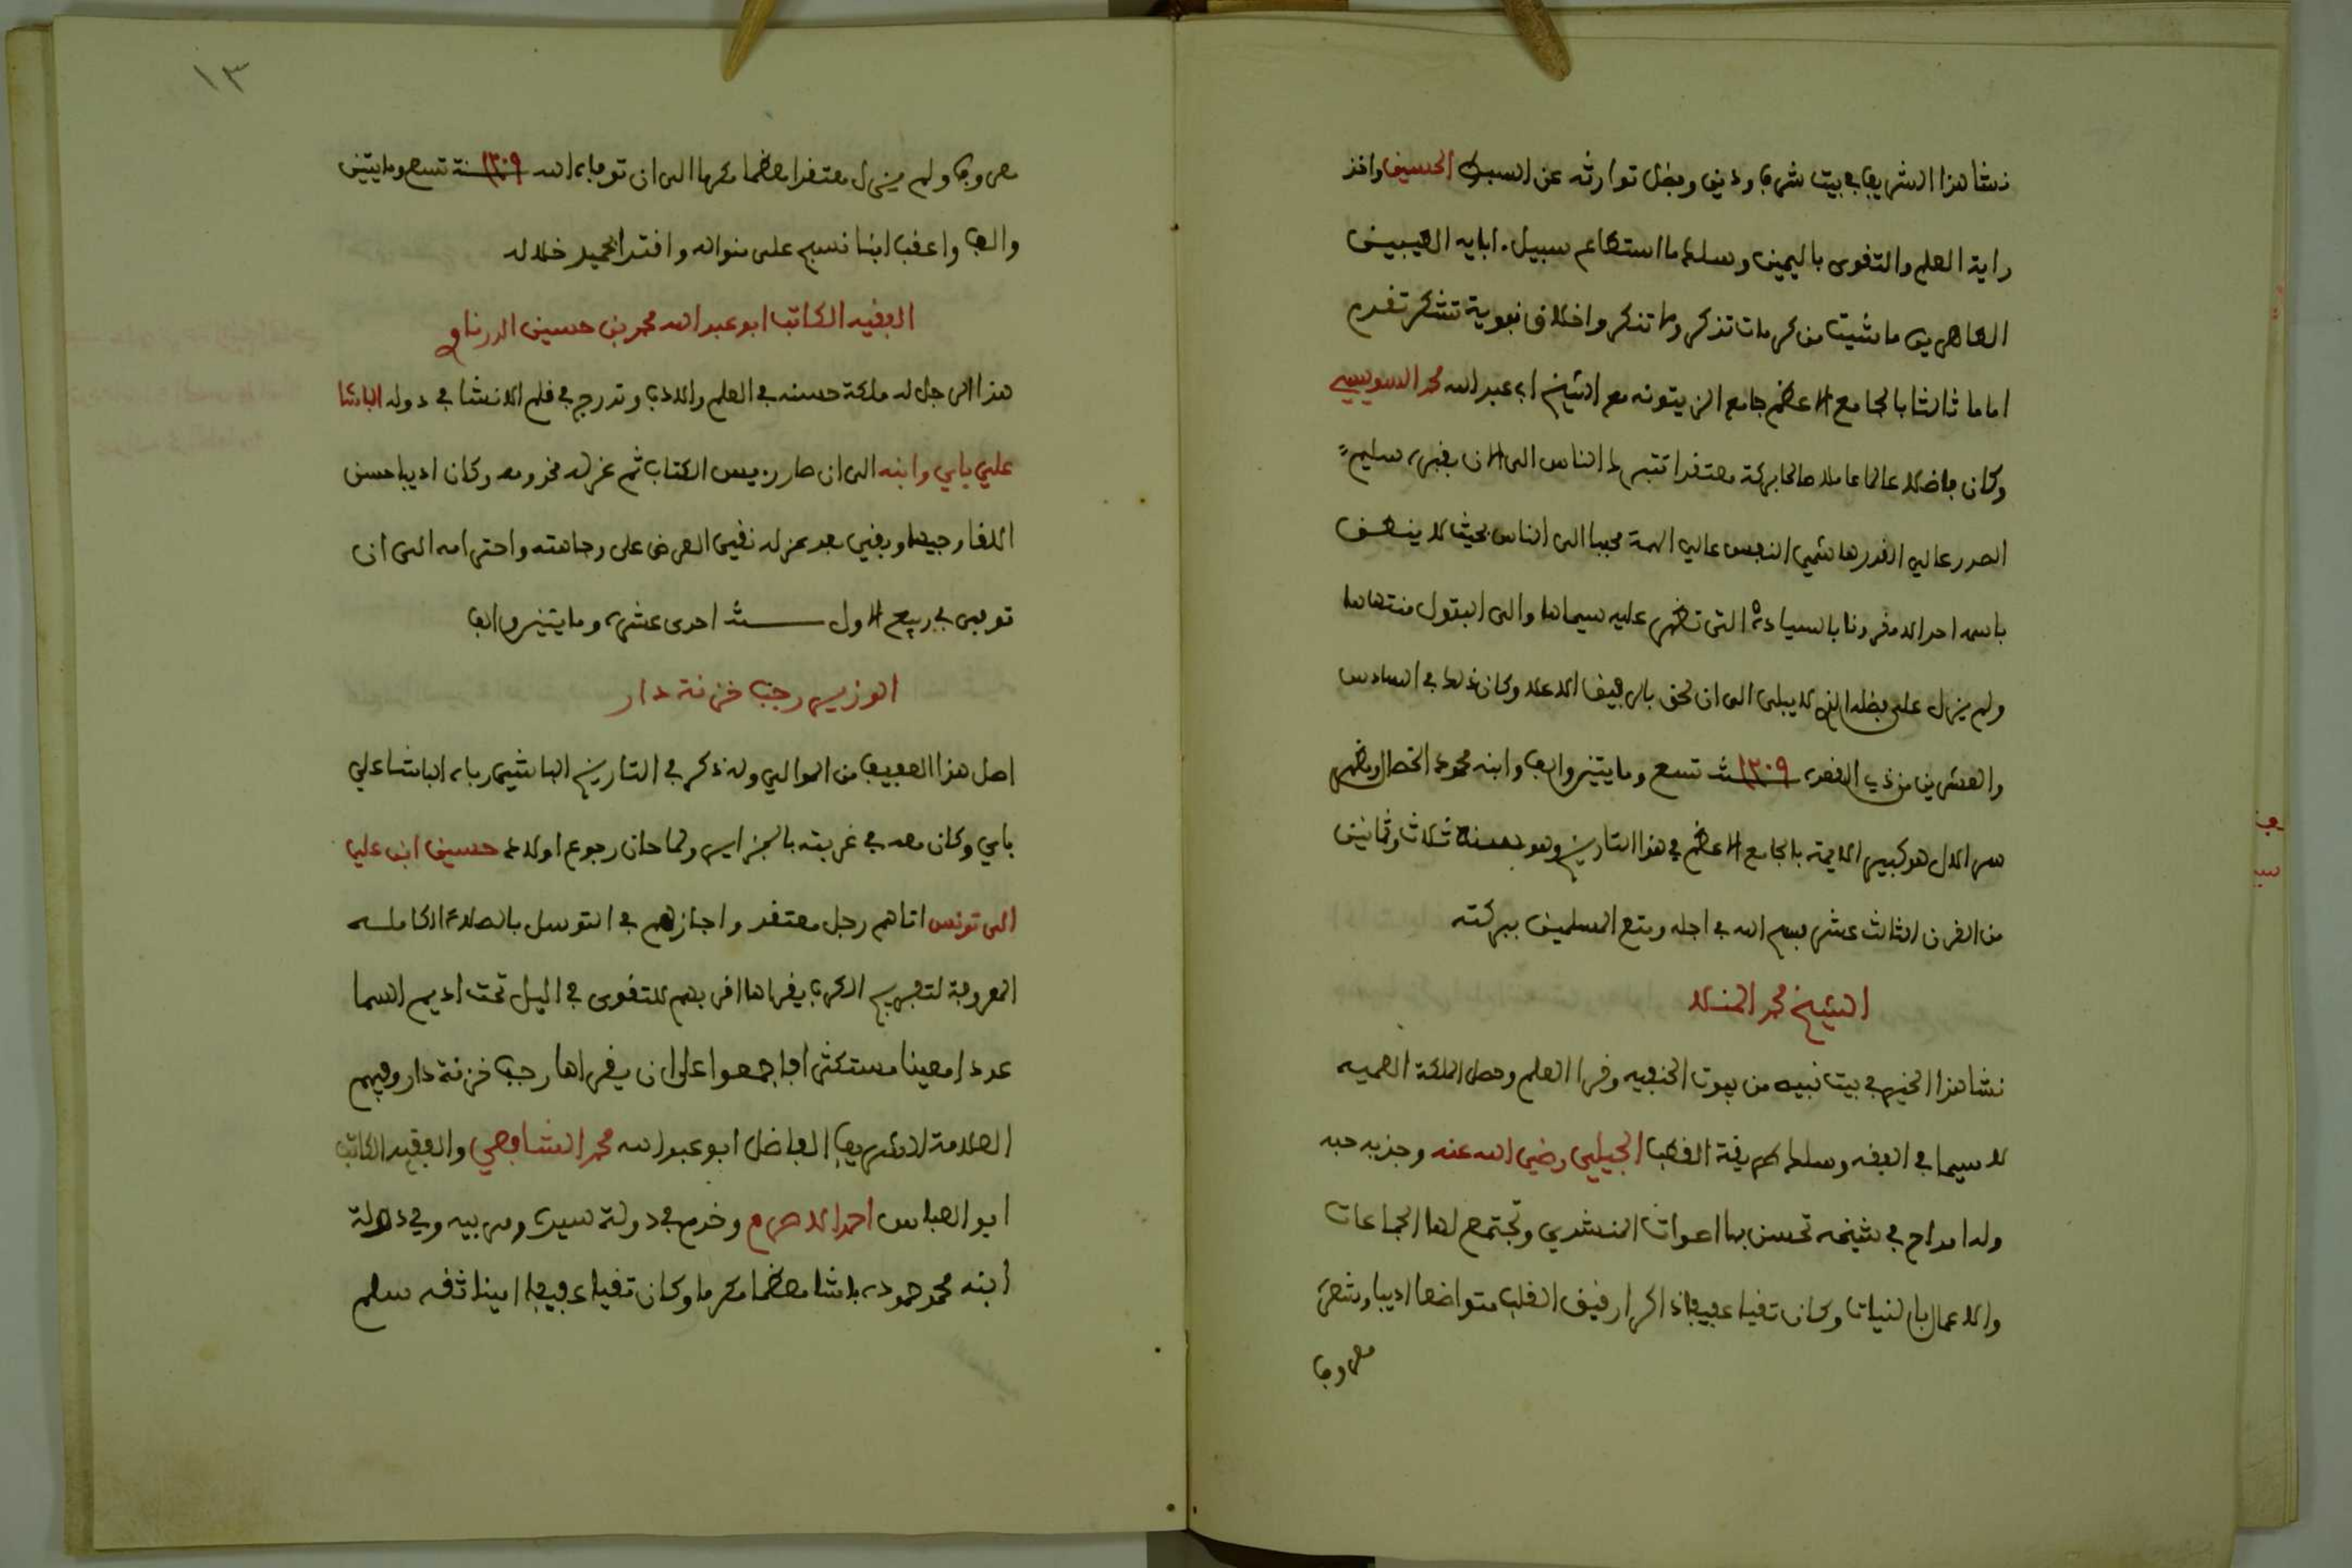 نشا هذا الشريف في بيت شرف ودين وفضل توارثه عن السبط الحسين واخذ
راية العلم والتقوى باليمين وسلك ما استطاع سبيل ابايه الطيبين
الطاهرين ما شيت من كرمات تذكر وما تنكر واخلاق نبوية تشكر تقدم
اماما ثالثا بالجامع الاعظم جامع الزيتونه مع الشيخ ابي عبد الله محمد السويسي
وكان فاضلا عالما عاملا صالحا بركة معتقدا تتبرك الناس الى الان بقبره سليم
الصدر عالي القدر هاشمي النفس عالي الهمة محببا الى الناس بحيث لا ينطق
باسمه احد الا مقرونا بالسيادة التي تظهر عليه سيماها والى البتول منتهاها
ولم يزل على فضله الذي لا يبلى الى ان لحق بالرفيق الاعلا وكان ذلك في السادس
والعشرين من ذي القعدة سنة ١٢٠٩ تسع ومايتين والف وابنه محمود الخصال ومظهر
سر الال هو كبير الايمة بالجامع الاعظم في هذا التاريخ وهو سنة ثلاث وثمانين
من القرن الثالث عشر فسح الله في اجله ومتع المسلمين ببركته
الشيخ محمد المنسلا
نشا هذا الخير في بيت نبيه من بيوت الحنفيه وقرا العلم وحصل الملكة العلميه
لا سيما في الفقه وسلك طريقة القطب الجيلي رضي الله عنه وجذبه حبه
وله امداح في شيخه تحسن بها اصوات المنشدي وتجتمع لها الجماعات
والاعمال بالنيات وكان تقيا عفيفا ذاكرا رقيق القلب متواضعا اديبا وشعره
معروفا
١٣
معروفا ولم يزل معتقدا معظما مكرما الى ان توفاه الله سنة ١٢٠٩ تسع ومايتين
والف واعقب ابنا نسج على منواله واقتدا بحميد خلاله
الفقيه الكاتب ابو عبد الله محمد بن حسين الدرناوي
هذا الرجل له ملكة حسنه في العلم والادب وتدرج في قلم الانشا في دوله الباشا
علي باي وابنه الى ان صار رييس الكتاب ثم عزله مخدومه وكان اديبا حسن
اللقا وجيها وبقي بعد عزله نقي العرض على وجاهته واحترامه الى ان
توفي في ربيع الاول سنة احدى عشرة ومايتين والف
الوزير رجب خزنة دار
اصل هذا العفيف من الموالي وله ذكر في التاريخ الباشي رباه الباشا علي
باي وكان معه في غربته بالجزاير ولما حان رجوع اولاد حسين ابن علي
الى تونس اتاهم رجل معتقد واجازهم في التوسل بالصلاة الكامله
المعروفة لتفريج الكرب يقراها اقربهم للتقوى في اليل تحت اديم السما
عددا معينا مستكثرا فاجمعوا على ان يقراها رجب خزنة دار وفيهم
العلامة الشريف الفاضل ابو عبد الله محمد الشافعي والفقيه الكاتب
ابو العباس احمد الاصرم وخدم في دولة سيده ومربيه وفي دولة
ابنه محمد حمودة باشا معظما مكرما وكان تقيا عفيفا امينا ثقه سلم